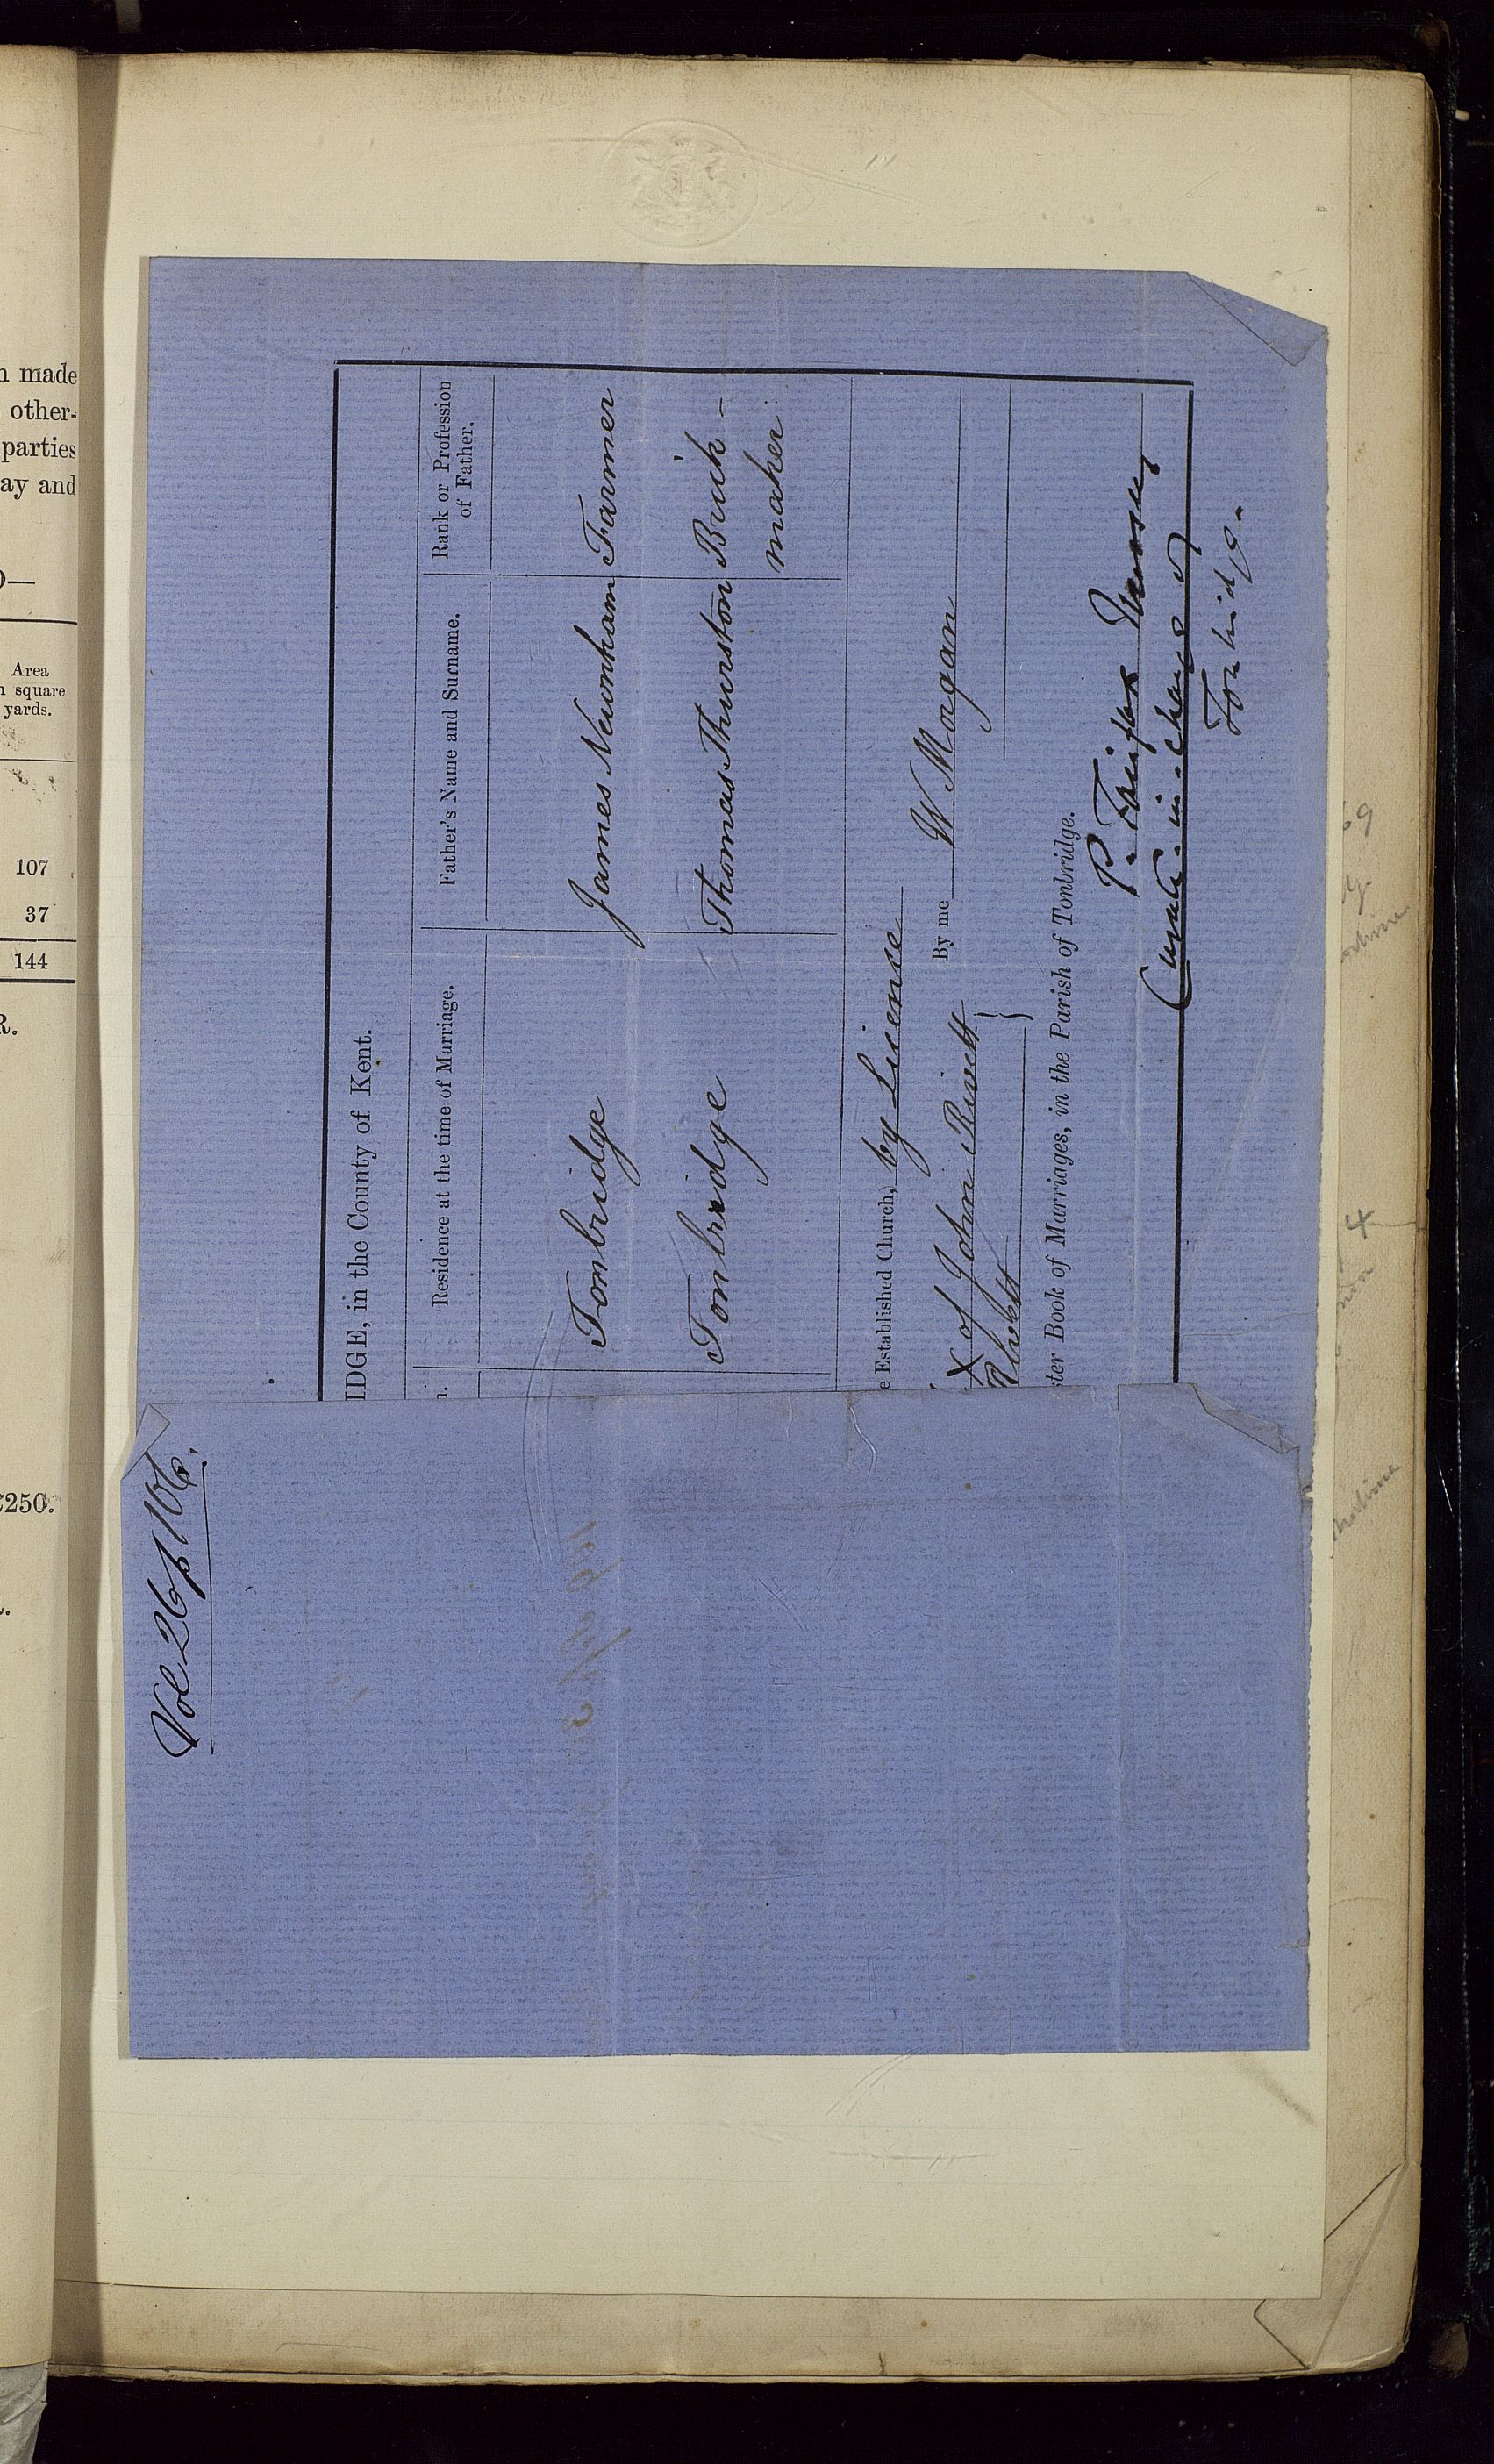 n made
other-
parties
ay and
D—
Area
n square
yards.
107
37
144
R.
£250.
Vol 26 p 106.
IDGE, in the County of Kent.
n. Residence at the time of Marriage. Father's Name and Surname. Rank or Profession
of Father.
Tonbridge James Newnham Farmer
Tonbridge Thomas Thurston Brick-
maker
e Established Church, by Licence
X of John Rivett By me W Morgan
ster Book of Marriages, in the Parish of Tonbridge.
P. Fairfax
Curate-in-charge of
Tonbridge.
69
4